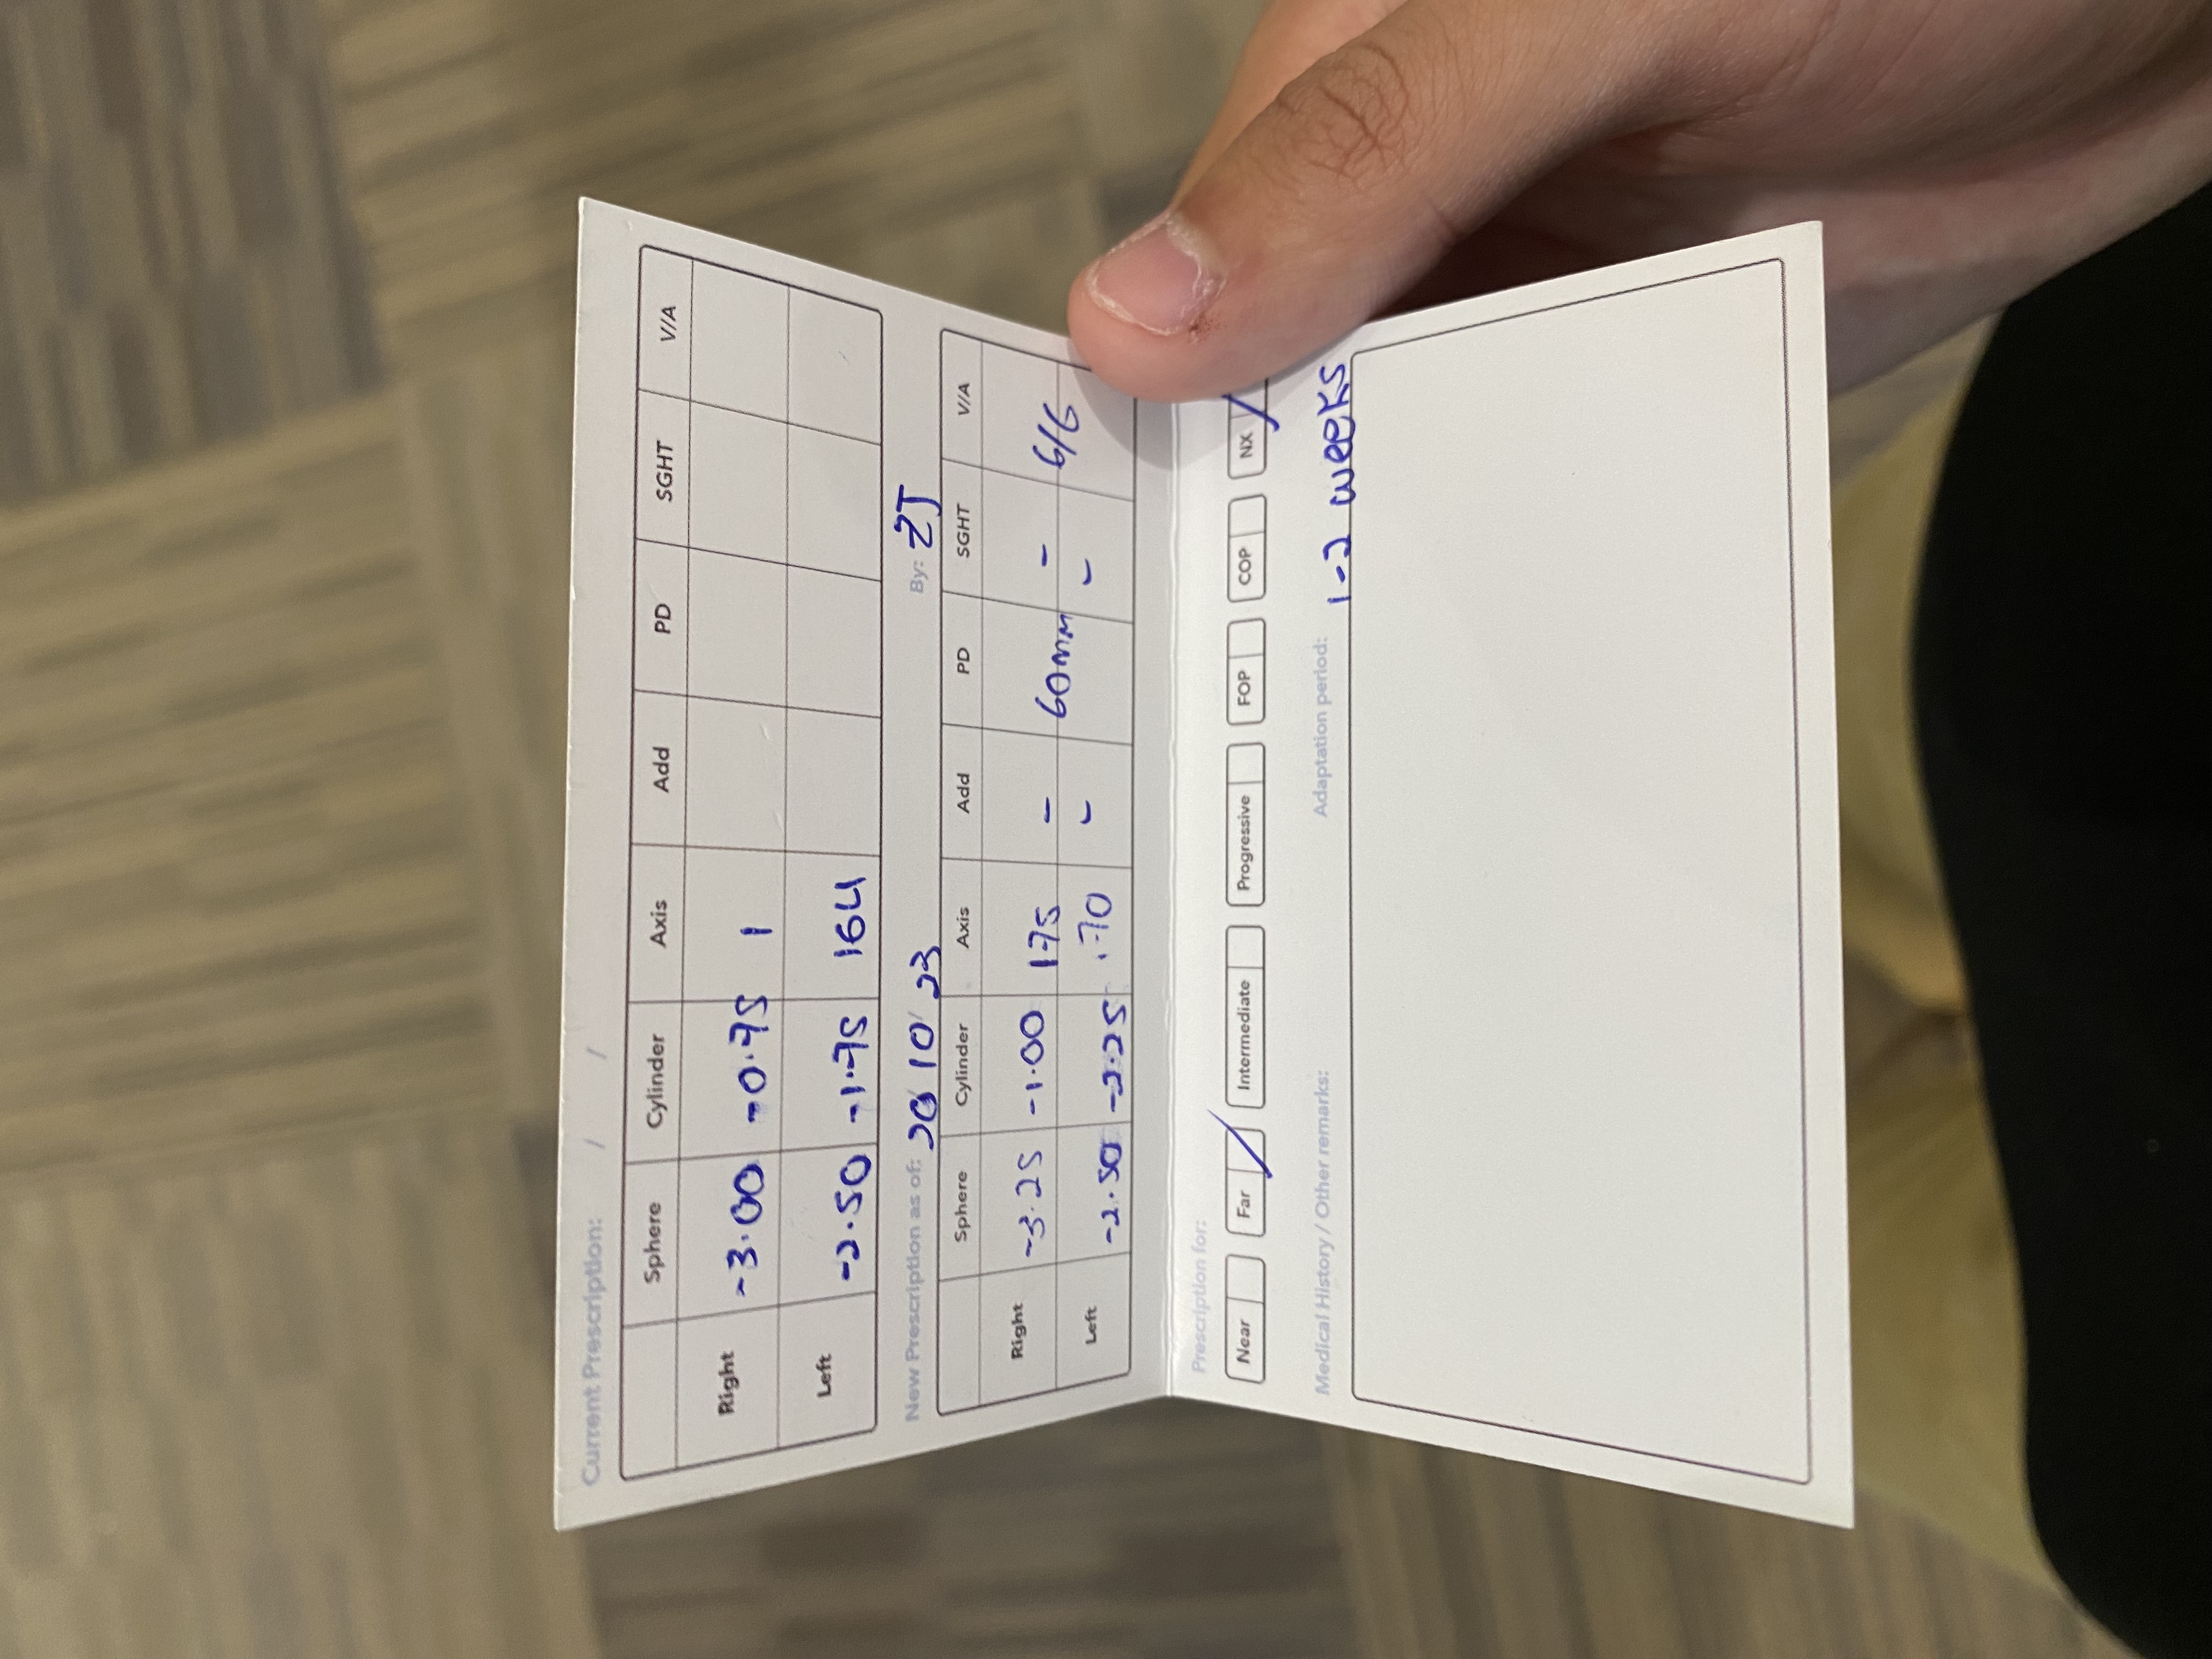 Current Prescription: / /
Sphere Cylinder Axis Add PD SGHT V/A
Right -3.00 -0.75 1
Left -2.50 -1.75 164
New Prescription as of: 20/10/23 By: ZJ
Sphere Cylinder Axis Add PD SGHT V/A
Right -3.25 -1.00 175 - 60mm - 6/6
Left -2.50 -2.25 170 - -
Prescription for:
Near Far / Intermediate Progressive FOP COP NX /
Medical History / Other remarks: Adaptation period: 1-2 weeks